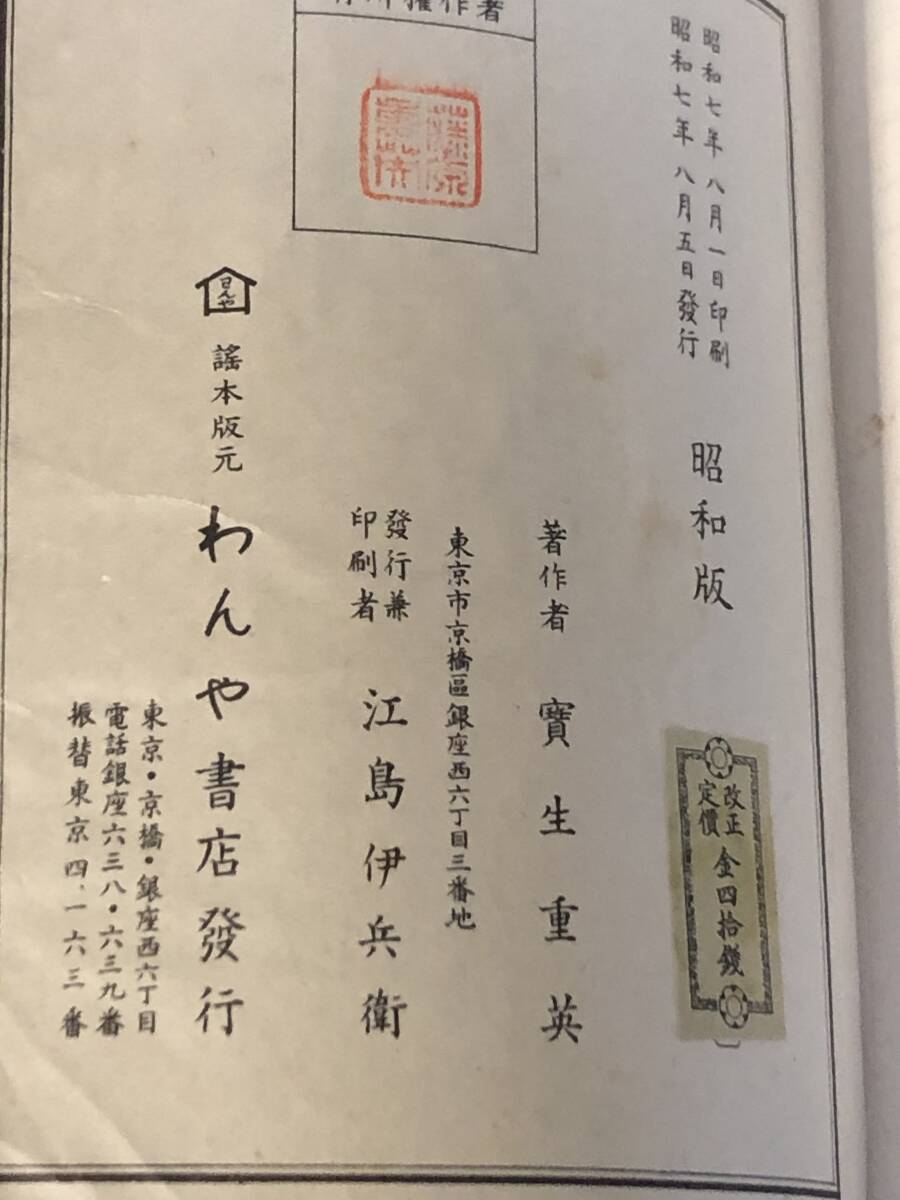 昭和七年八月一日印刷
昭和七年八月五日發行
昭和版
改正
定價
金四拾錢
著作者 寶生重英
東京市京橋區銀座西六丁目三番地
發行兼
印刷者
江島伊兵衛
作者
わんや
謠本版元 わんや書店發行
東京・京橋・銀座西六丁目
電話銀座六三八・六三九番
振替東京四、一六三番